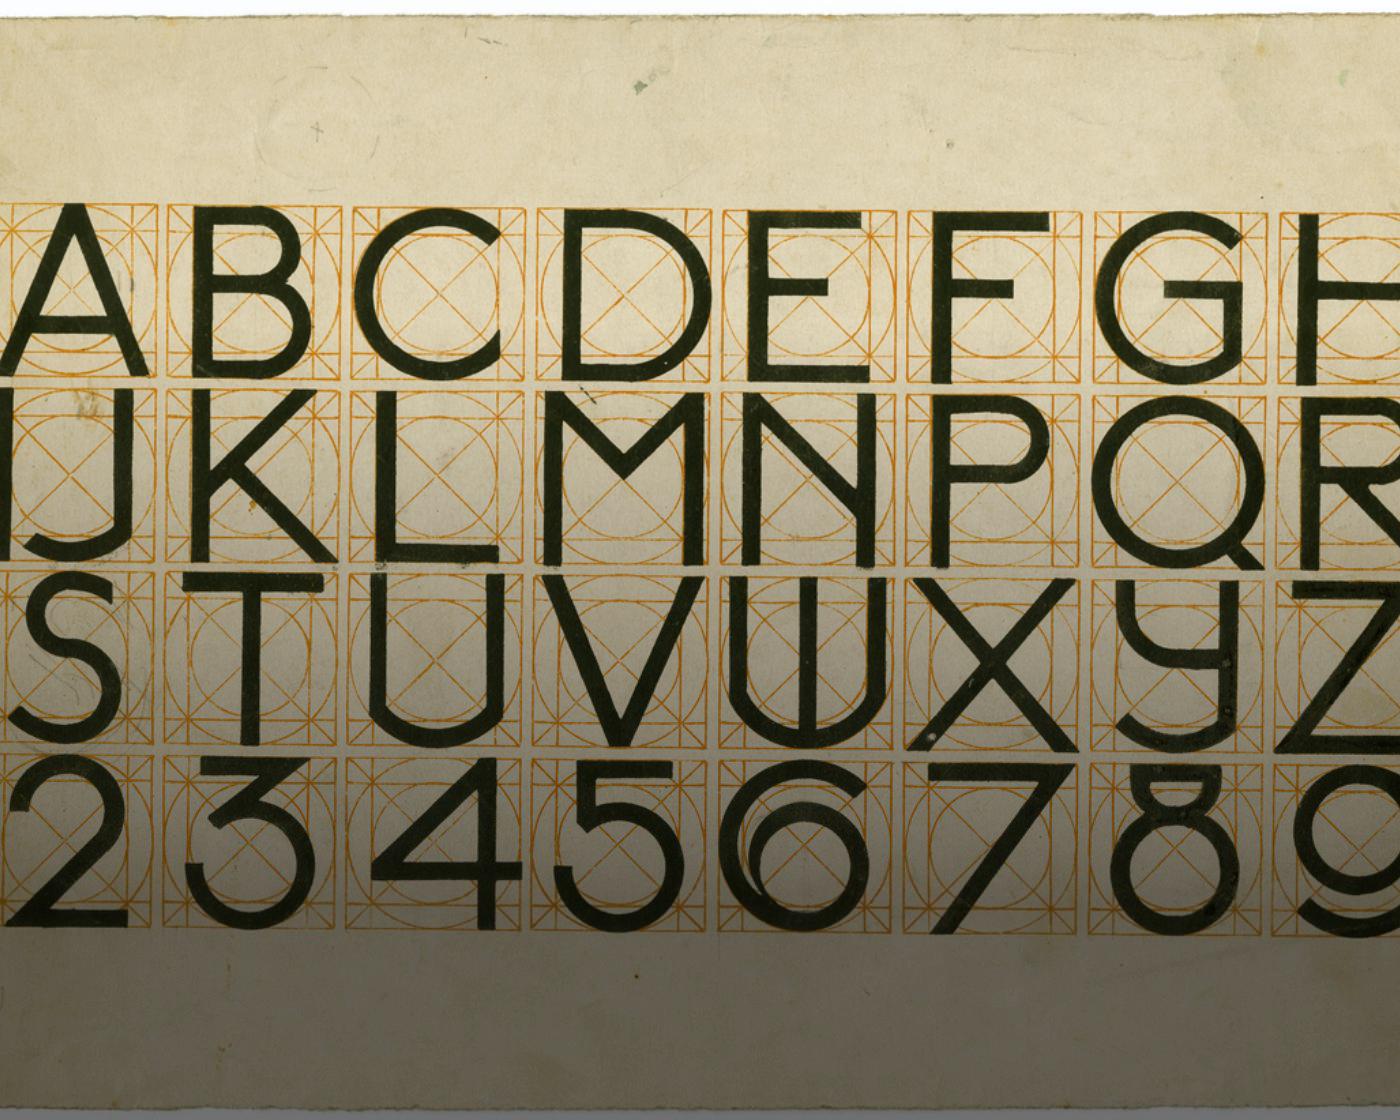 A B C D E F G H
I J K L M N P Q R
S T U V W X Y Z
2 3 4 5 6 7 8 9